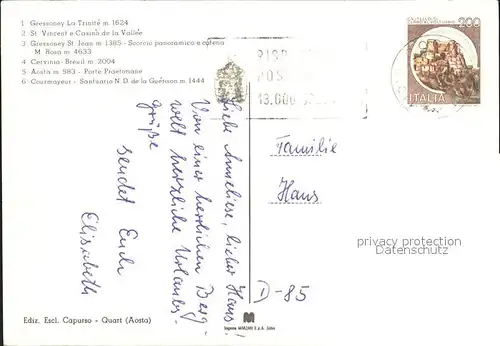 1 Gressoney La Trinité m. 1624
2 St. Vincent e Casinò de la Vallée
3 Gressoney St. Jean m. 1385 - Scorcio panoramico e catena
M. Rosa m. 4633
4 Cervinia-Breuil m. 2094
5 Aosta m. 983 - Porte Praetoriane
6 Courmayeur - Santuario N. D. de la Guérison m. 1444
200
ITALIA
13.000
Liebe Anneliese, lieber Hans!
Von einer herrlichen Berg-
welt herzliche Urlaubs-
grüße
sendet Euch
Elisabeth
Familie
Hans
D-85
privacy protection
Datenschutz
Ediz. Escl. Capurso - Quart (Aosta)
M